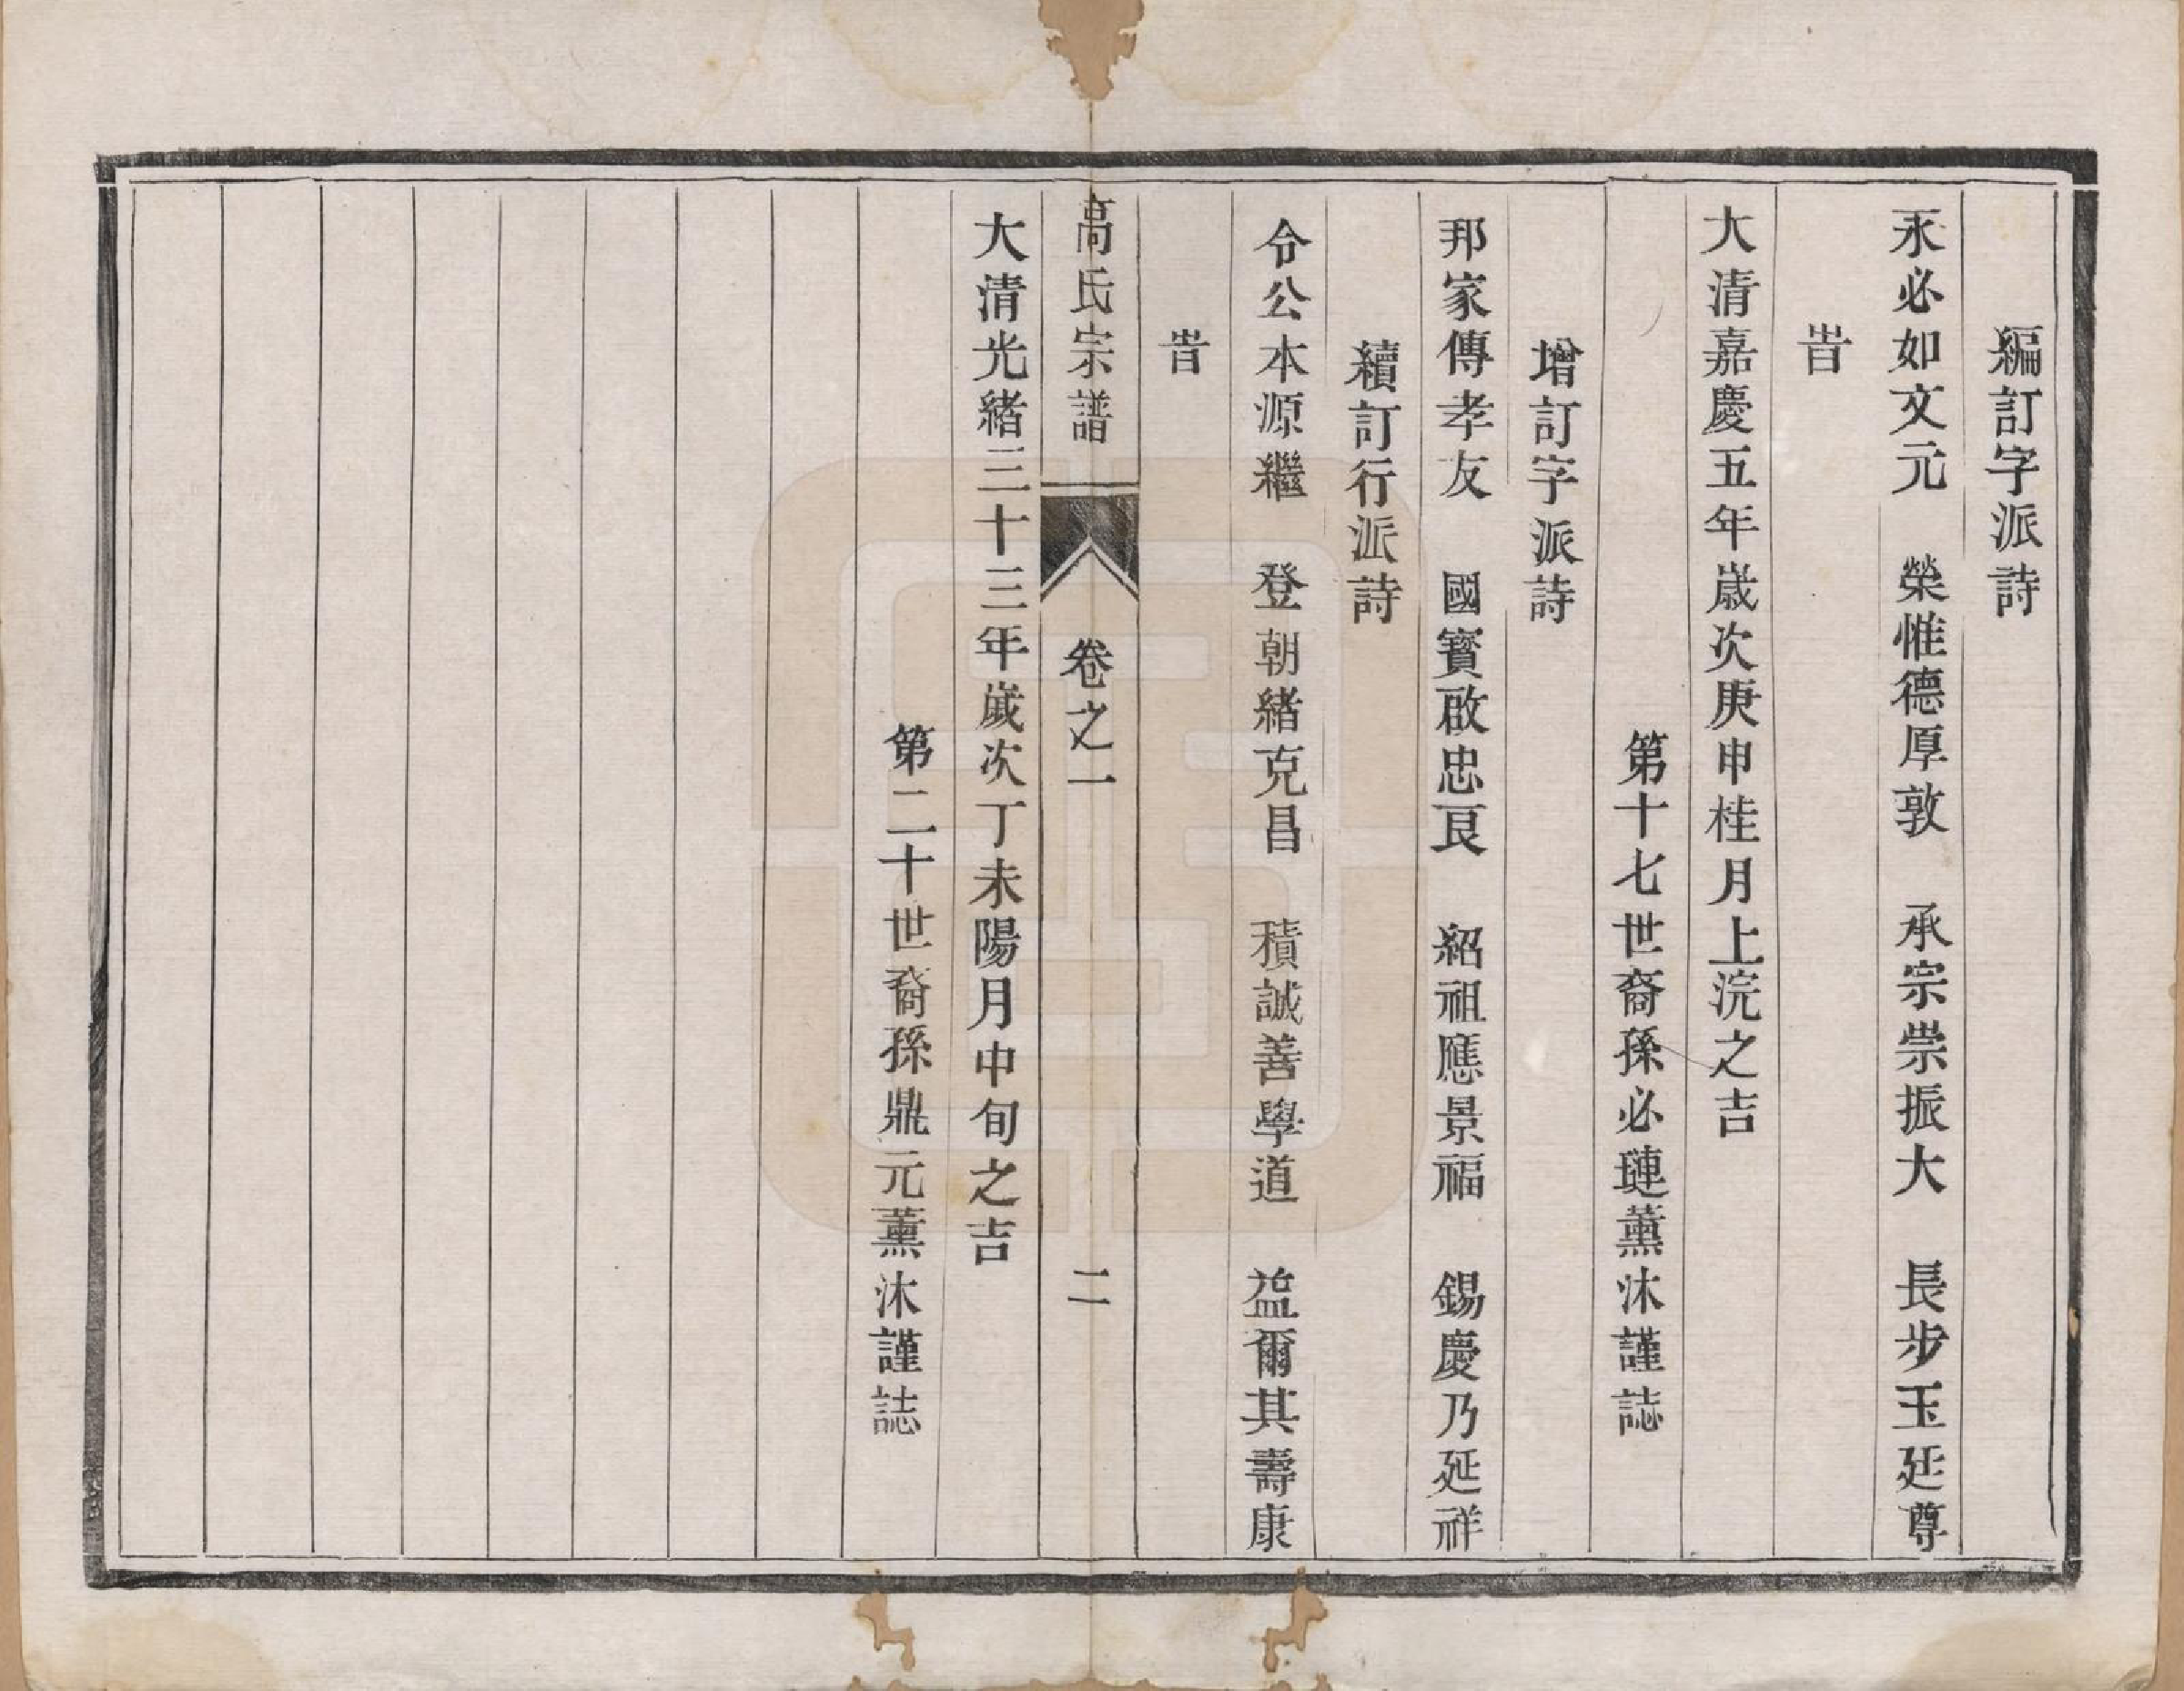 編訂字派詩
永必如文元　榮惟德厚敦　承宗崇振大　長步玉廷尊
旹
大清嘉慶五年歲次庚申桂月上浣之吉
第十七世裔孫必璉薰沐謹誌
增訂字派詩
邦家傳孝友　國寶啟忠良　紹祖應景福　錫慶乃延祥
續訂行派詩
令公本源繼　登朝緒克昌　積誠善學道　益爾其壽康
旹
高氏宗譜　卷之一　二
大清光緒三十三年歲次丁未陽月中旬之吉
第二十世裔孫鼎元薰沐謹誌